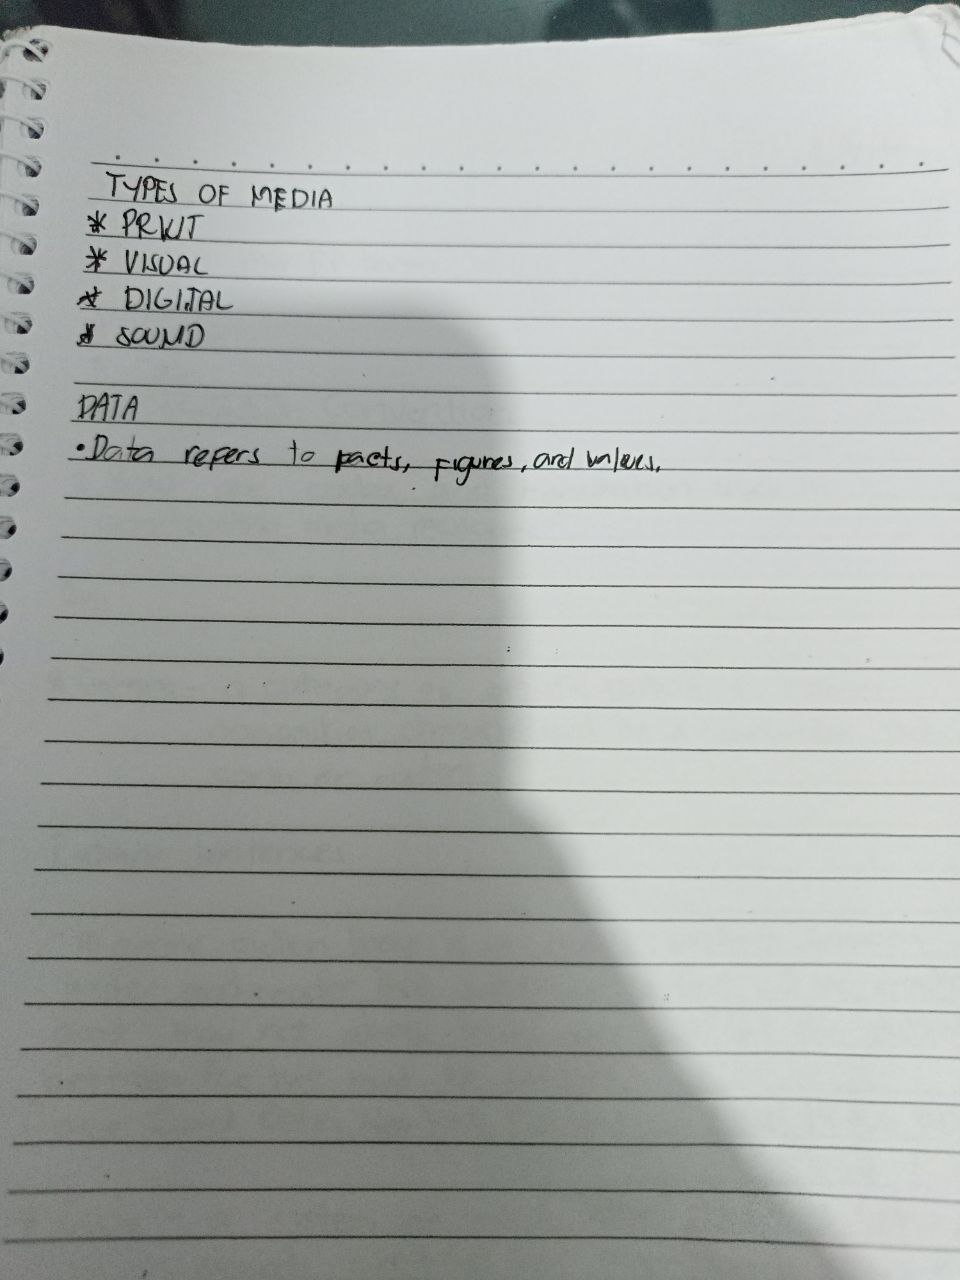 TYPES OF MEDIA
* PRINT
* VISUAL
* DIGITAL
* SOUND
DATA
• Data refers to facts, figures, and values.